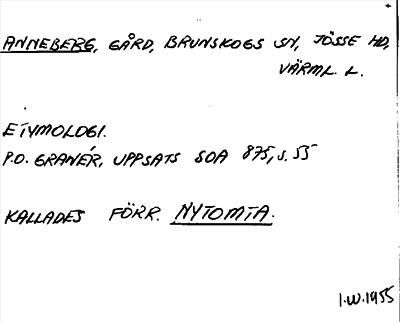 ANNEBERG, GÅRD, BRUNSKOGS SN, JÖSSE HD,
VÄRML. L.
ETYMOLOGI.
P.O. GRANÉR, UPPSATS SOA 875, S. 55
KALLADES FÖRR. NYTOMTA.
I.W. 1955